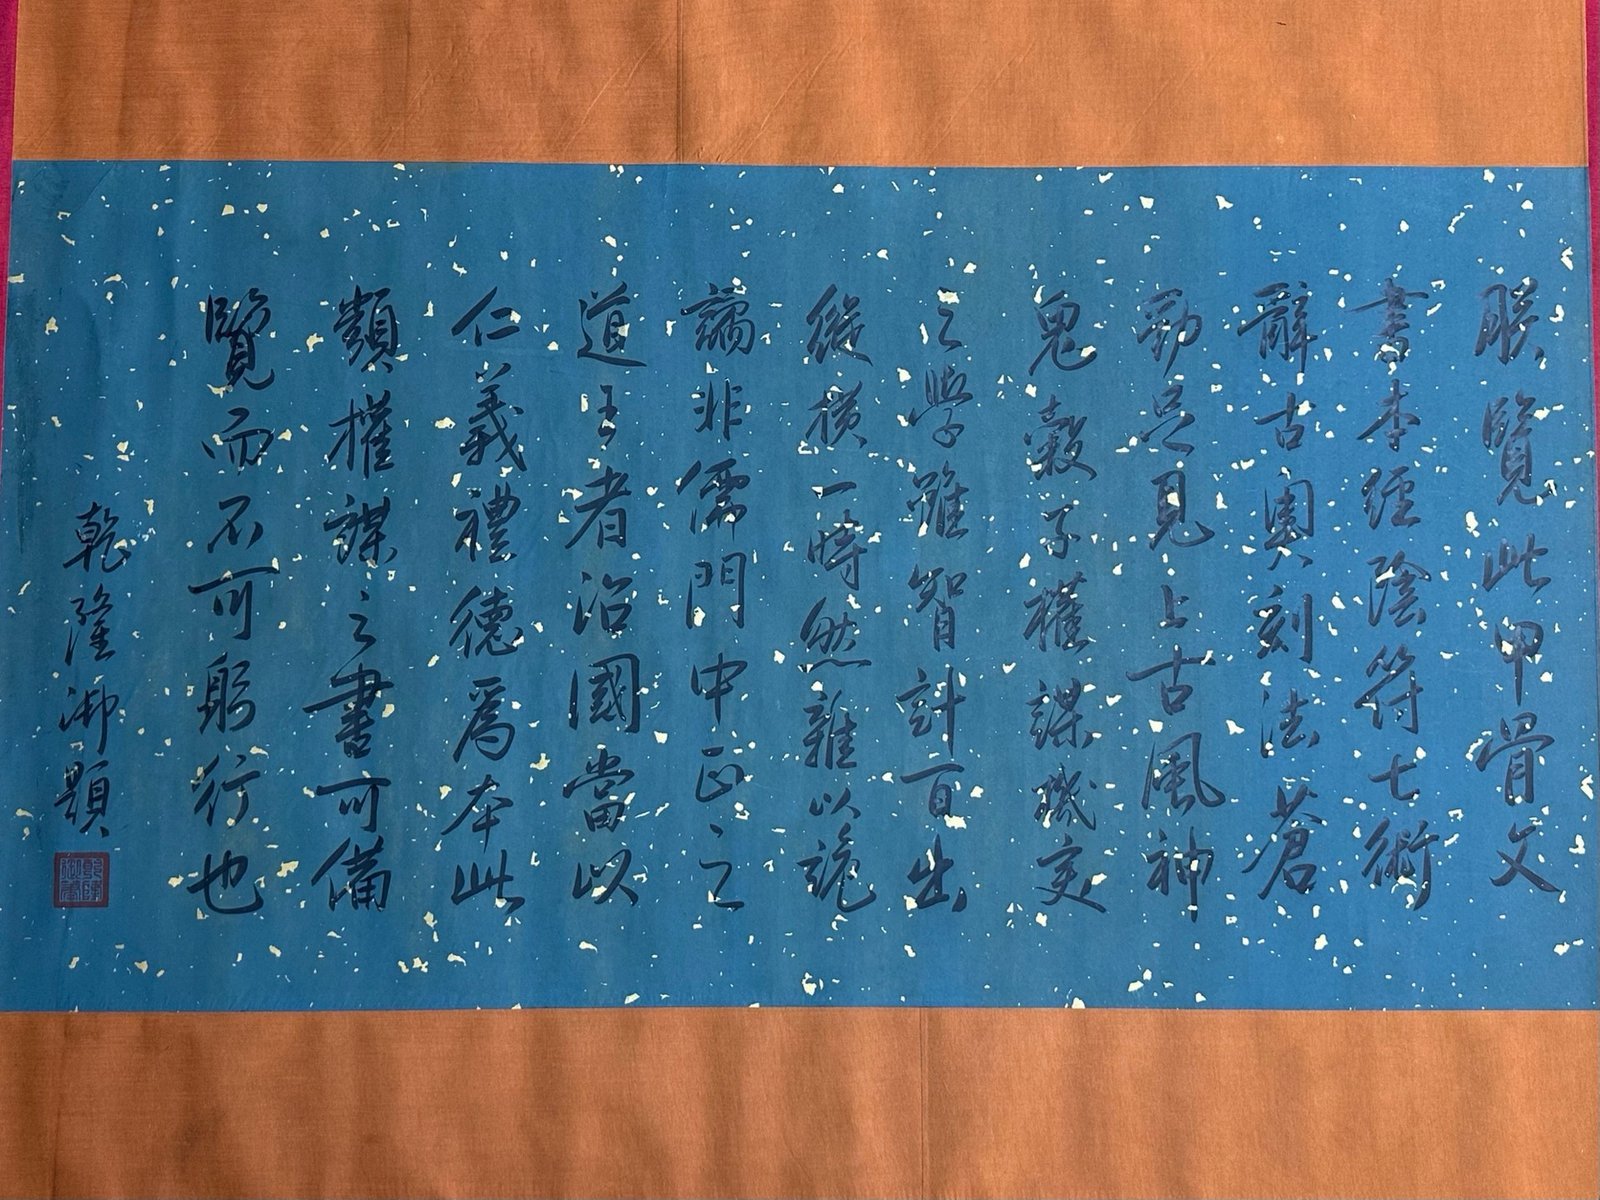 朕覽此甲骨文
書本經陰符七術
辭古奧刻法蒼
勁足見上古風神
鬼穀子權謀機变
之學雖智計百出
縱横一時然雜以詭
譎非儒門中正之
道王者治國當以
仁義禮德爲本此
類權謀之書可備
覽而不可躬行也
乾隆御題